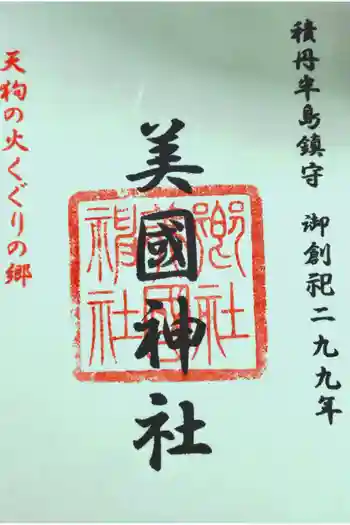 積丹半島鎮守 御創祀二九九年
美國神社
郷社
美國
神社
天狗の火くぐりの郷